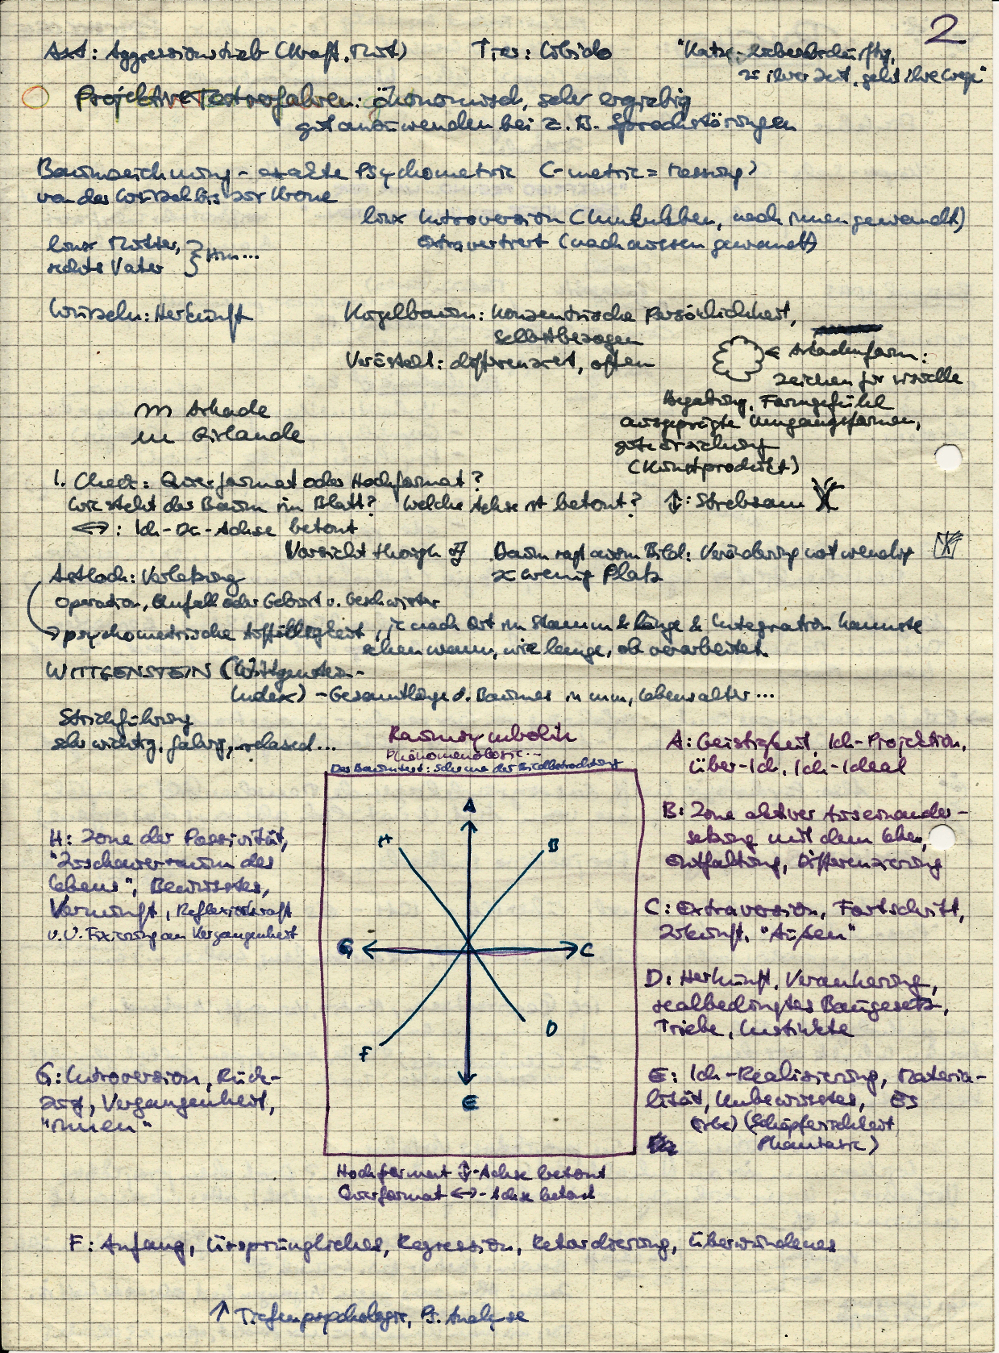 2
Ast: Aggressionstrieb (Kraft, Mut) Tier: Libido "Katze - Liebebedürftig,
zu ihrer Zeit, geht ihre Wege"
Projektive Testverfahren: ökonomisch, sehr ergiebig
gut anzuwenden bei z.B. Sprachstörungen
Baumzeichnung - exakte Psychometrie (-metric = Messung)
von der Wurzel bis zur Krone
links Introversion (Innenleben, nach innen gewandt)
extravertiert (nach aussen gewandt)
links Mutter,
rechts Vater } Hm...
Wurzeln: Herkunft Kugelbaum: Konzentrische Persönlichkeit,
selbstbezogen
Verästelt: differenziert, offen
← Arkadenform:
Zeichen für visuelle
Begabung, Formgefühl
ausgeprägte Umgangsformen,
gute Erziehung
(Kunstprodukt)
m Arkade
m Girlande
1. Check: Querformat oder Hochformat?
Wie steht der Baum im Blatt? Welche Achse ist betont? ↕: Strebsam
↔: Ich-Du-Achse betont
Vorsicht though Baum ragt ausm Bild: Veränderung notwendig
zu wenig Platz
Astloch: Verletzung
Operation, Unfall oder Geburt v. Geschwister
→ psychometrische Auffälligkeit, je nach Ort im Stamm & Länge & Integration kannste
sehen wann, wie lange, ob verarbeitet
WITTGENSTEIN (Wittgenstein-
Index) - Gesamtlänge d. Baumes in mm, Lebensalter...
Strichführung
sehr wichtig, fahrig, relaxed...
Raumsymbolik
Phänomenologie...
Der Baumtest: Schema der Bildbetrachtung
A: Geistigkeit, Ich-Projektion,
Über-Ich, Ich-Ideal
B: Zone aktiver Auseinander-
setzung mit dem Leben,
Entfaltung, Differenzierung
C: Extraversion, Fortschritt,
Zukunft, "Außen"
D: Herkunft, Verankerung,
realbedingtes Baugesetz,
Triebe, Instinkte
E: Ich-Realisierung, Materia-
lität, Unbewusstes, ES
(Erbe) (Schöpferischkeit
Phantasie)
H: Zone der Passivität,
"Zuschauerraum des
Lebens", Bewusstes,
Vernunft, Reflexionskraft
u.U. Fixierung an Vergangenheit
G: Introversion, Rück-
zug, Vergangenheit,
"Innen"
A
H B
G C
F D
E
Hochformat ↕-Achse betont
Querformat ↔-Achse betont
F: Anfang, Ursprüngliches, Regression, Retardierung, Überwundenes
↑ Tiefenpsychologie, Ps. Analyse